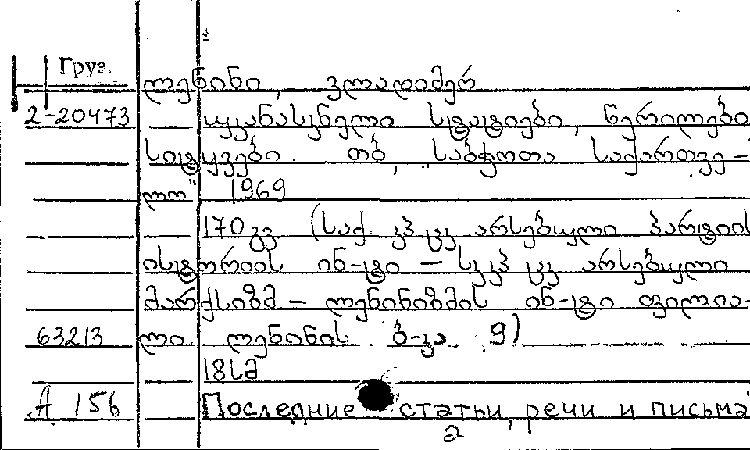 Груз.
ლენინი, ვლადიმერ
2-20473 უკანასკნელი სტატიები, წერილები
სიტყვები. თბ, „საბჭოთა საქართვე-
ლო" 1969
170 გვ (საქ. კპ ცკ არსებული პარტიის
ისტორიის ინ-ტი – სკკპ ცკ არსებული
მარქსიზმ – ლენინიზმის ინ-ტი ფილია-
63213 ლი. ლენინის ბ-კა 9)
A 156 Последние статьи, речи и письма